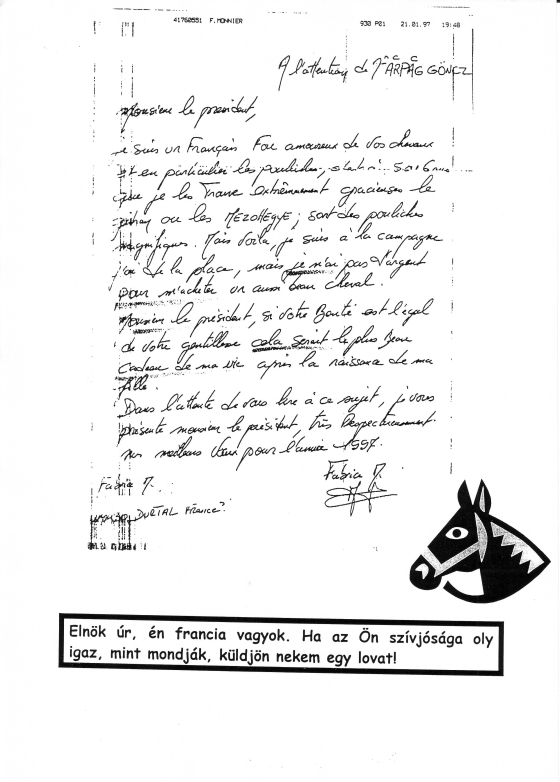 41760551 F.MONNIER 930 P01 21.01.97 19:48
A l'attention de Mr ARPAG GÖNCZ
Monsieur le president,
je suis un Français Fou amoureux de vos chevaux
et en particulier les pouliches,
que je les Trouve Extrêmement gracieuses le
ou les MEZOHEGYE; sont des pouliches
magnifiques. Mais voila, je suis à la campagne
j'ai de la place, mais je n'ai pas d'argent
pour m'acheter un aussi beau cheval.
Monsieur le président, si votre Bonté est l'égal
de votre gentillesse cela serait le plus Beau
Cadeau de ma vie après la naissance de ma
fille.
Dans l'attente de vous lire à ce sujet, je vous
présente monsieur le président, très Respectueusement
mes meilleurs Vœux pour l'année 1997.
Fabrice M.
Fabrice M.
DURTAL France
Elnök úr, én francia vagyok. Ha az Ön szívjósága oly
igaz, mint mondják, küldjön nekem egy lovat!